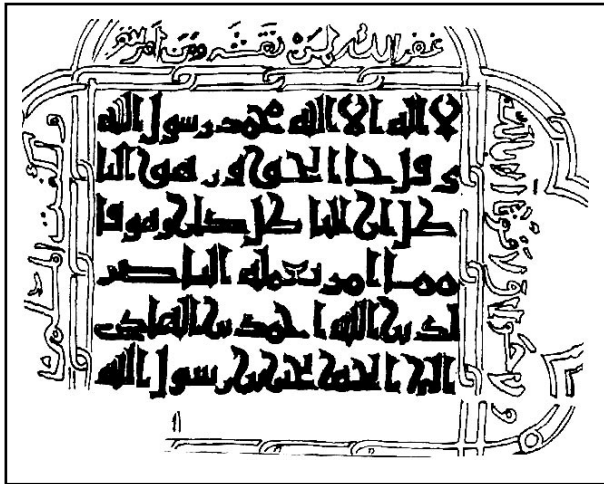 غفر الله لمن نقشه ومن امر
لا اله الا الله محمد رسول الله
و قل جا الحق و زهق البا
طل ان البا طل كان زهوقا
مما امر بعمله الناصر
لدين الله احمد بن الهادي
الى الحق يحيى بن رسول الله
ولا حول ولا قوة الا بالله